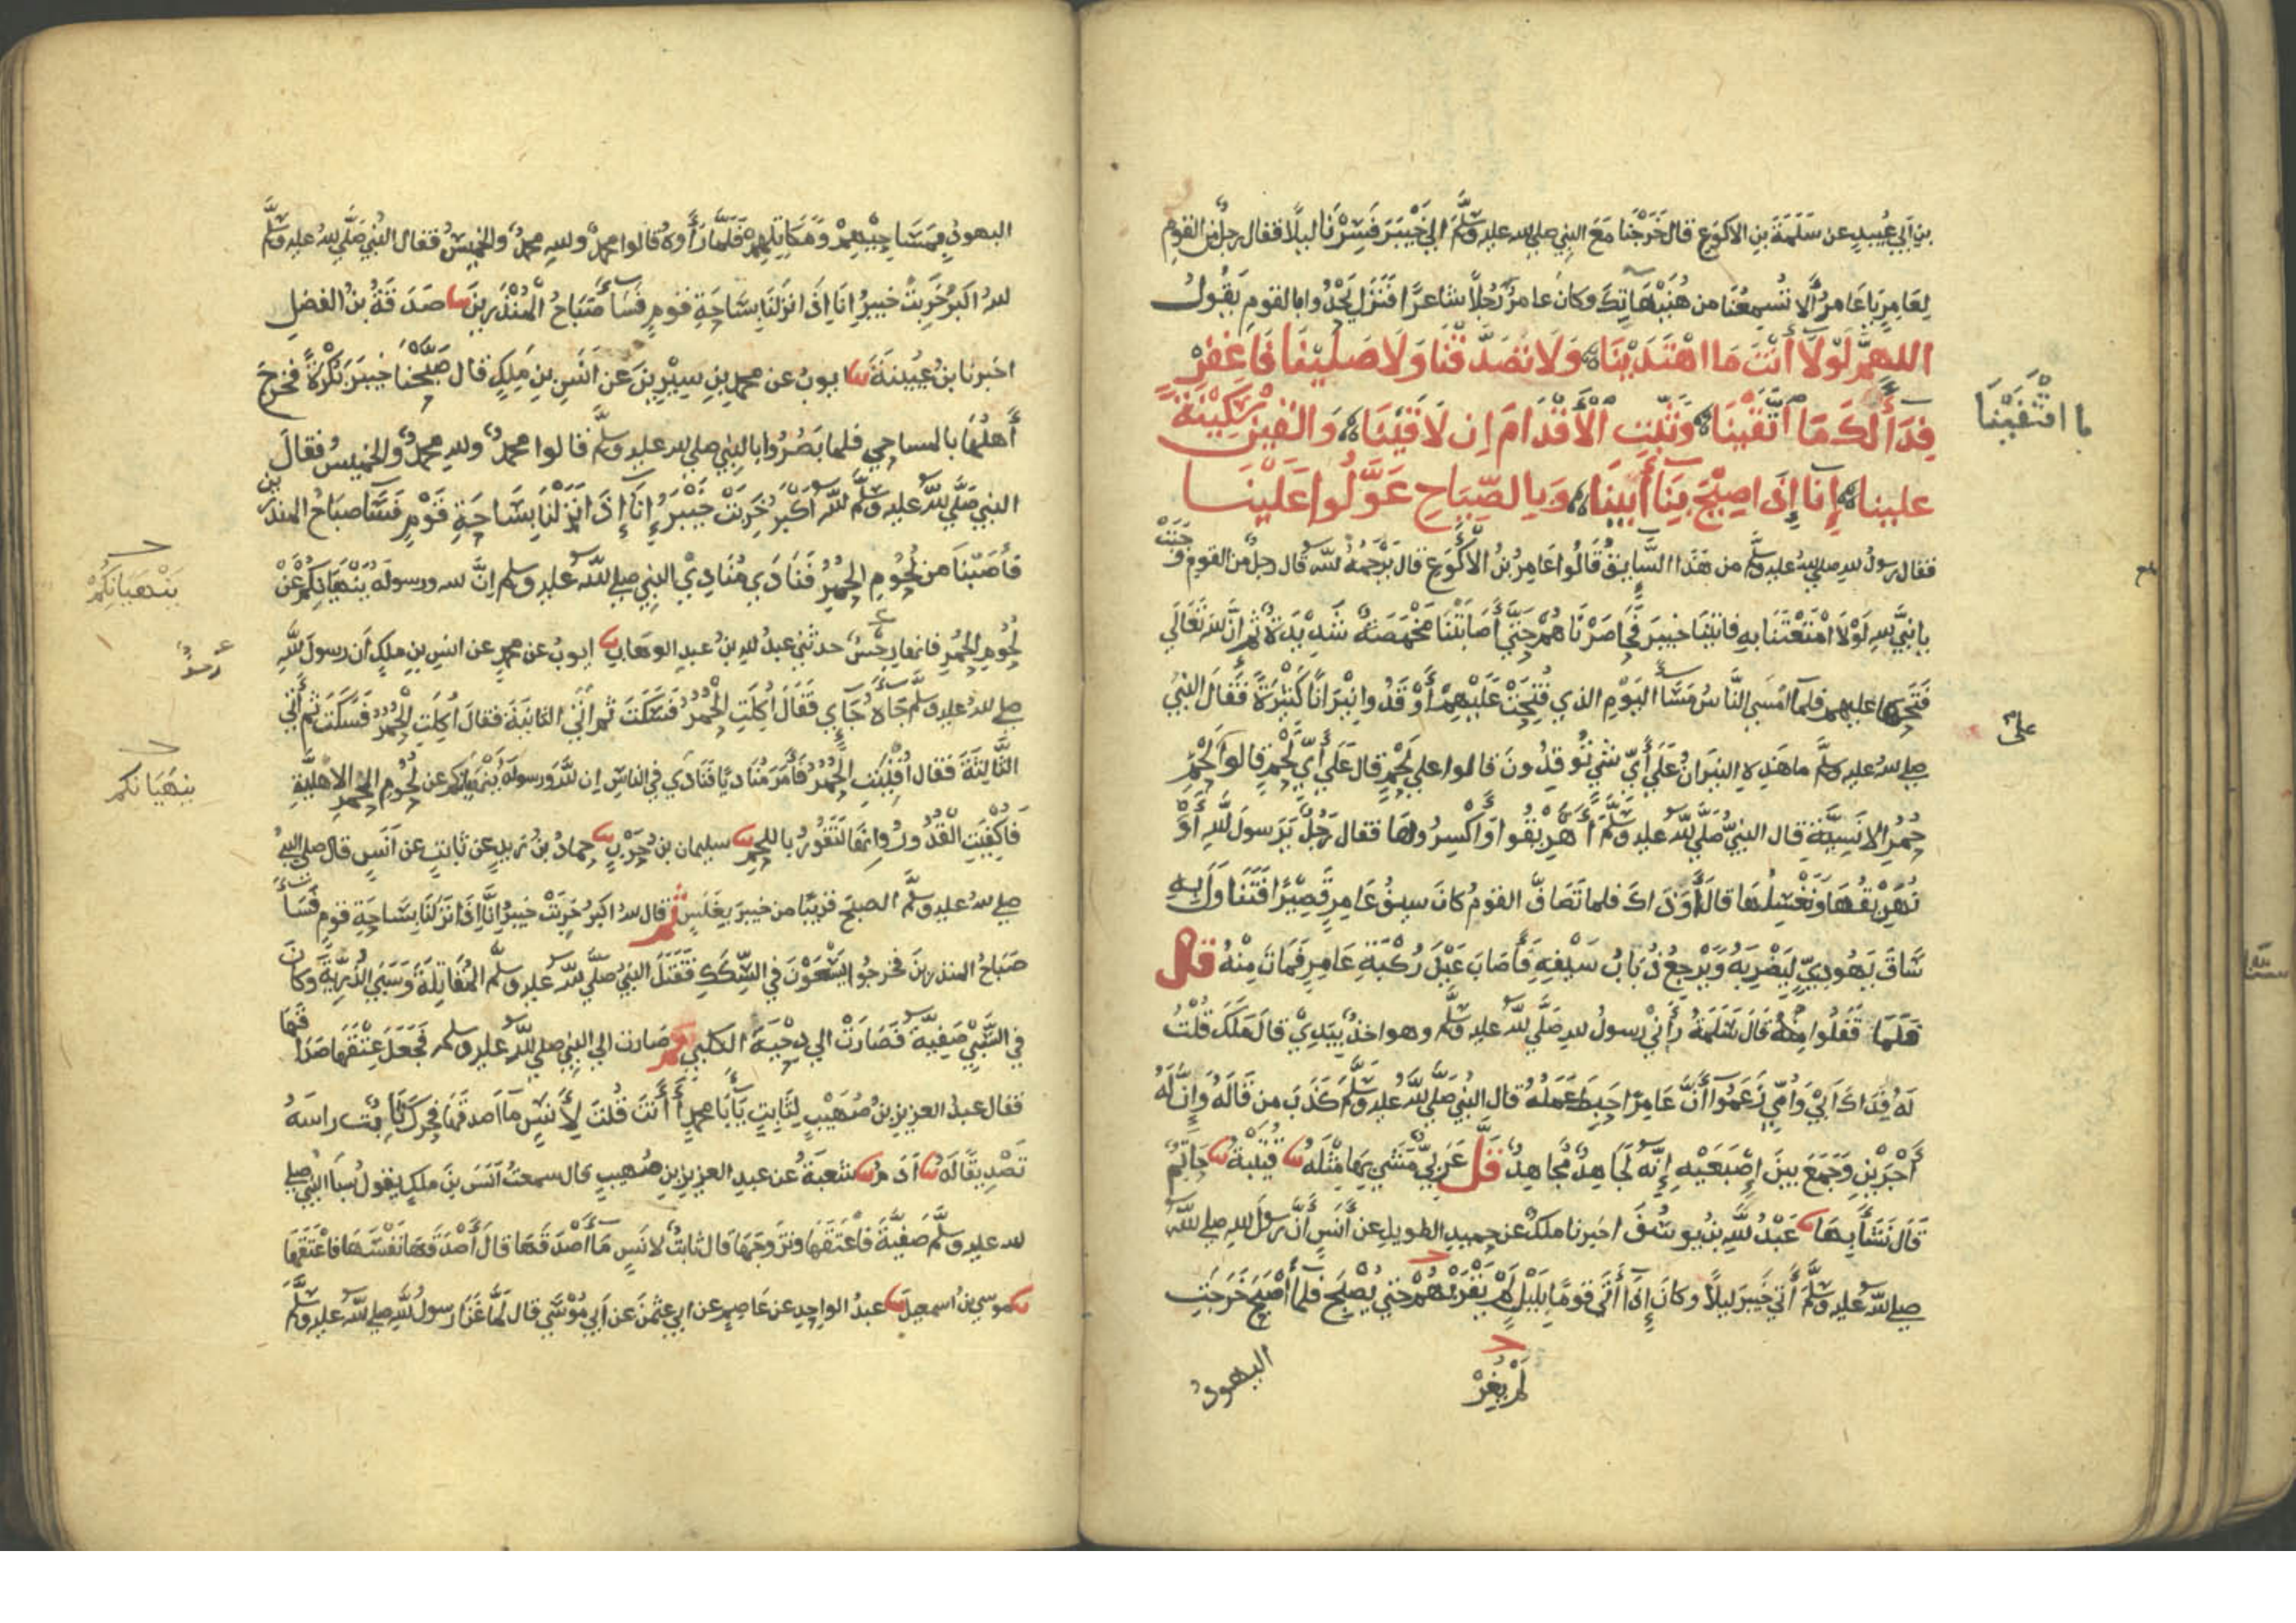 بن أبي عبيد عن سلمة بن الاكوع قال خرجنا مع النبي صلى الله عليه وسلم الى خيبر فسرنا ليلا فقال رجل من القوم
لعامر يا عامر ألا تسمعنا من هنيهاتك وكان عامر رجلا شاعرا فنزل يحدوا بالقوم يقول
اللهم لولا أنت ما اهتدينا ولا تصدقنا ولا صلينا فاغفر
فداء لك ما اتقينا وثبت الأقدام ان لاقينا والقين سكينة
علينا إنا إذا اصيح بنا أبينا وبالصياح عولوا علينا
ما اقتفينا
فقال رسول الله صلى الله عليه وسلم من هذا السايق قالوا عامر بن الأكوع قال يرحمه الله قال رجل من القوم وجبت
يا نبي الله لولا امتعتنا به فاتينا خيبر فحاصرناهم حتى أصابتنا مخمصة شديدة ثم ان الله تعالى
فتحها عليهم فلما امسى الناس مساء اليوم الذي فتحت عليهم أوقدوا نيرانا كثيرة فقال النبي
صلى الله عليه وسلم ما هذه النيران على أي شي توقدون قالوا على لحم قال على أي لحم قالوا لحم
على
حمر الانسية قال النبي صلى الله عليه وسلم أهريقوا واكسروها فقال رجل يرسول الله أو
نهريقها ونغسلها قال أو ذاك فلما تصاف القوم كان سيف عامر قصيرا فتناول به
ساق يهودي ليضربه ويرجع ذباب سيفه فأصاب عين ركبة عامر فمات منه قال
فلما قفلوا قال سلمة رأني رسول الله صلى الله عليه وسلم وهو اخذ بيدي قال ملك قلت
له فداك ابي وامي زعموا أن عامرا حبط عمله قال النبي صلى الله عليه وسلم كذب من قاله وإن له
أجرين وجمع بين إصبعيه إنه لجاهد مجاهد قل عربي مشي بها مثله قتيبة حاتم
قال نشأ بها عبد الله بن يوسف اخبرنا ملك عن حميد الطويل عن أنس أن رسول الله صلى الله
صلى الله عليه وسلم أتى خيبر ليلا وكان إذا أتى قوما بليل لم يقربهم حتى يصبح فلما أصبح خرجت
لم يغر
اليهود
اليهود بمساحيهم ومكاتلهم فلما رأوه قالوا محمد والله محمد والخميس فقال النبي صلى الله عليه وسلم
الله اكبر خربت خيبر إنا إذا نزلنا بساحة قوم فساء صباح المنذرين صدقة بن الفضل
اخبرنا بن عيينة ايوب عن محمد بن سيرين عن أنس بن ملك قال صبحنا خيبر بكرة فخرج
أهلها بالمساحي فلما بصروا بالنبي صلى الله عليه وسلم قالوا محمد والله محمد والخميس فقال
النبي صلى الله عليه وسلم الله أكبر خربت خيبر إنا إذا نزلنا بساحة قوم فساء صباح المنذرين
فأصبنا من لحوم الحمر فنادى منادي النبي صلى الله عليه وسلم ان الله ورسوله ينهيانكم عن
ينهيانكم
لحوم الحمر فانها رجس حدثني عبد الله بن عبد الوهاب ايوب عن محمد عن انس بن ملك أن رسول الله
صلى الله عليه وسلم جاءه جاي فقال أكلت الحمر فسكت ثم أتى الثانية فقال أكلت الحمر فسكت ثم أتى
الثالثة فقال أفنيت الحمر فأمر مناديا فنادى في الناس ان الله ورسوله ينهيانكم عن لحوم الحمر الاهلية
ينهيانكم
فأكفيت القدور وانها لتفور باللحم سليمان بن حرب حماد بن زيد عن ثابت عن أنس قال صلى النبي
صلى الله عليه وسلم الصبح قريبا من خيبر بغلس ثم قال الله اكبر خربت خيبر إنا إذا نزلنا بساحة قوم فساء
صباح المنذرين فخرجوا يسعون في السكك فقتل النبي صلى الله عليه وسلم المقاتلة وسبى الذرية وكان
في السبي صفية فصارت الى دحية الكلبي ثم صارت الى النبي صلى الله عليه وسلم فجعل عتقها صداقها
فقال عبد العزيز بن صهيب لثابت يا أبا محمد أأنت قلت لأنس ما أصدقها فحرك ثابت راسه
تصديقا له آدم شعبة عن عبد العزيز بن صهيب قال سمعت أنس بن ملك يقول سبا النبي صلى
الله عليه وسلم صفية فأعتقها وتزوجها قال ثابت لانس ما أصدقها قال أصدقها نفسها فاعتقها
موسى بن اسمعيل عبد الواحد عن عاصم عن ابي عثمن عن أبي موسى قال لما غزا رسول الله صلى الله عليه وسلم